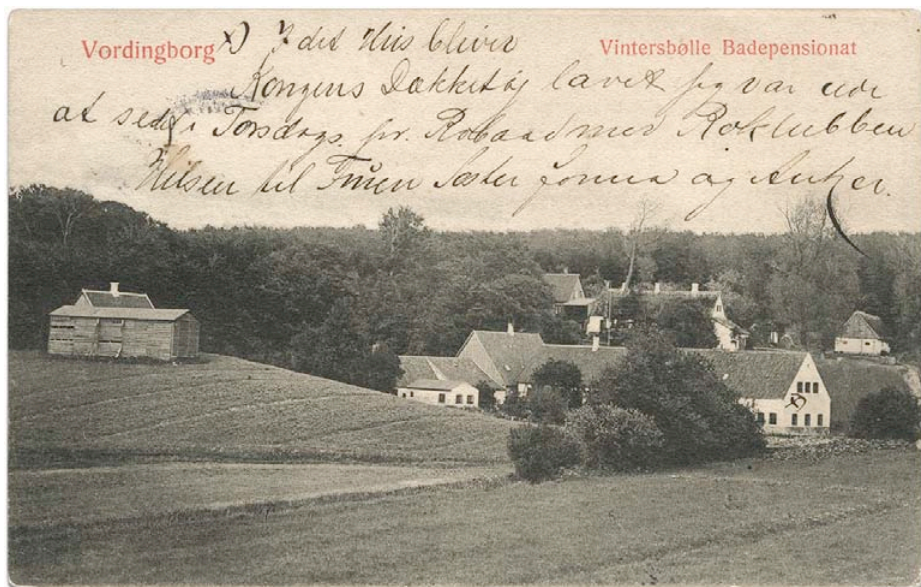 Vordingborg
Vintersbølle Badepensionat
X) I det Hus bliver
Kongens Dækketøj lavet jeg var ude
at se det i Torsdags pr. Robaad med Roklubben
Hilsen til Søster og Anker.
X)